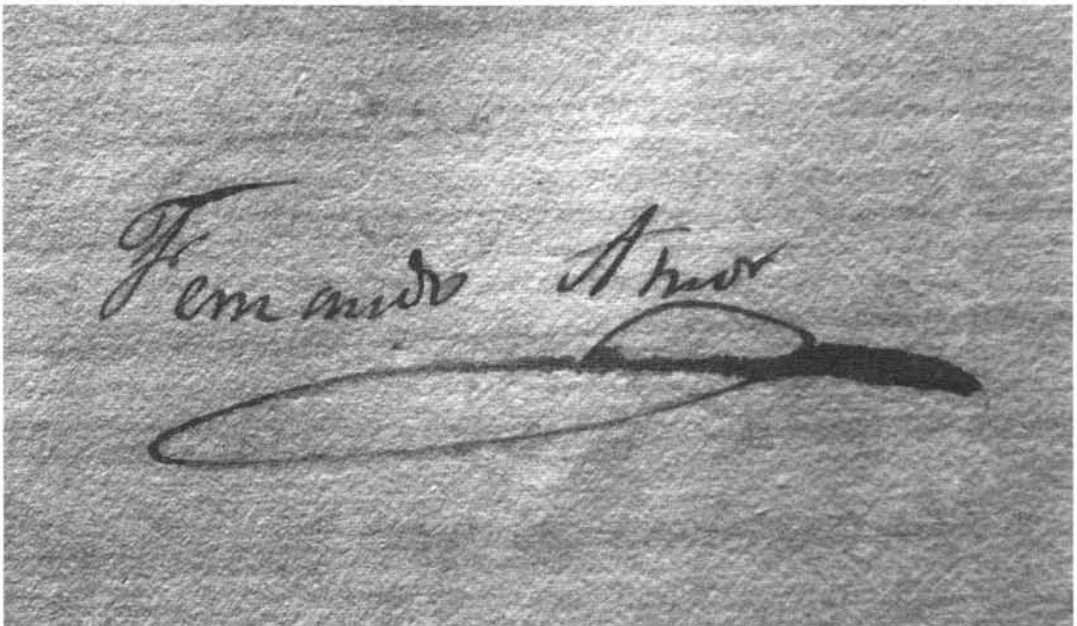 Fernando Amor